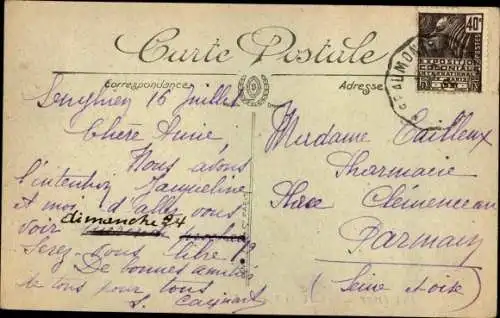 Carte Postale
Correspondance
Adresse
40c
EXPOSITION
COLONIALE
INTERNATIONALE
PARIS
BEAUMON
15 Juillet
Chère Amie
Nous avons
l'intention Jacqueline
et moi d'aller vous
voir
dimanche 24
Serez-vous libre ?
De bonnes amitiés
de tous pour tous
Madame Cailleux
Pharmacie
Place Clémenceau
Parmain
(Seine & Oise)